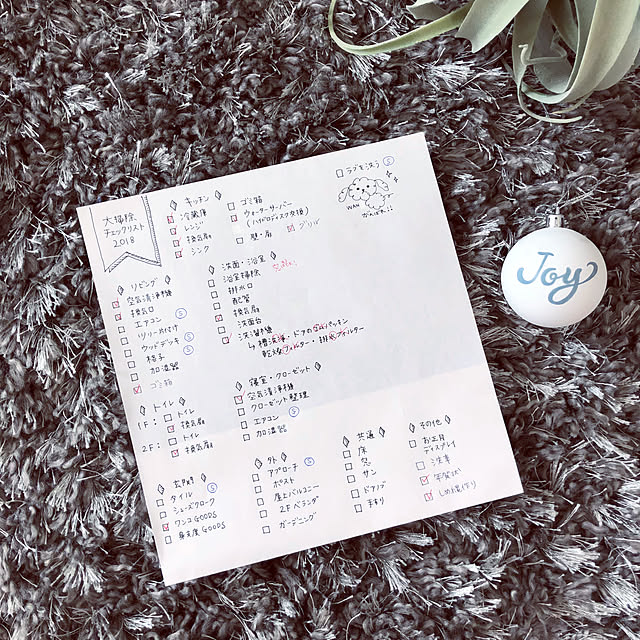 大掃除
チェックリスト
2018
◇ キッチン ◇
冷蔵庫
レンジ
換気扇
シンク
ゴミ箱
ウォーターサーバー
(バイオディスク交換)
壁・扉
グリル
ラブをあらう Ⓢ
◇ リビング ◇
空気清浄機
換気口
エアコン Ⓢ
ツリー片付け
ウッドデッキ Ⓢ
椅子 Ⓢ
加湿器
ゴミ箱
◇ 洗面・浴室 ◇
浴室掃除
排水口
配管
換気扇
洗面台
洗濯機
◇ トイレ ◇
1F: トイレ
換気扇
2F: トイレ
換気扇
◇ 寝室・クローゼット ◇
空気清浄機
クローゼット整理
エアコン Ⓢ
加湿器
◇ 玄関 ◇
タイル Ⓢ
シューズクローク
ワンコGOODS
GOODS
◇ 外 ◇
アプローチ Ⓢ
ポスト
屋上バルコニー
2Fベランダ
ガーデニング
◇ 共通 ◇
床
窓
サン
ドアノブ
手すり
◇ その他 ◇
お正月
ディスプレイ
洗車
年賀状
しめ縄作り
Joy